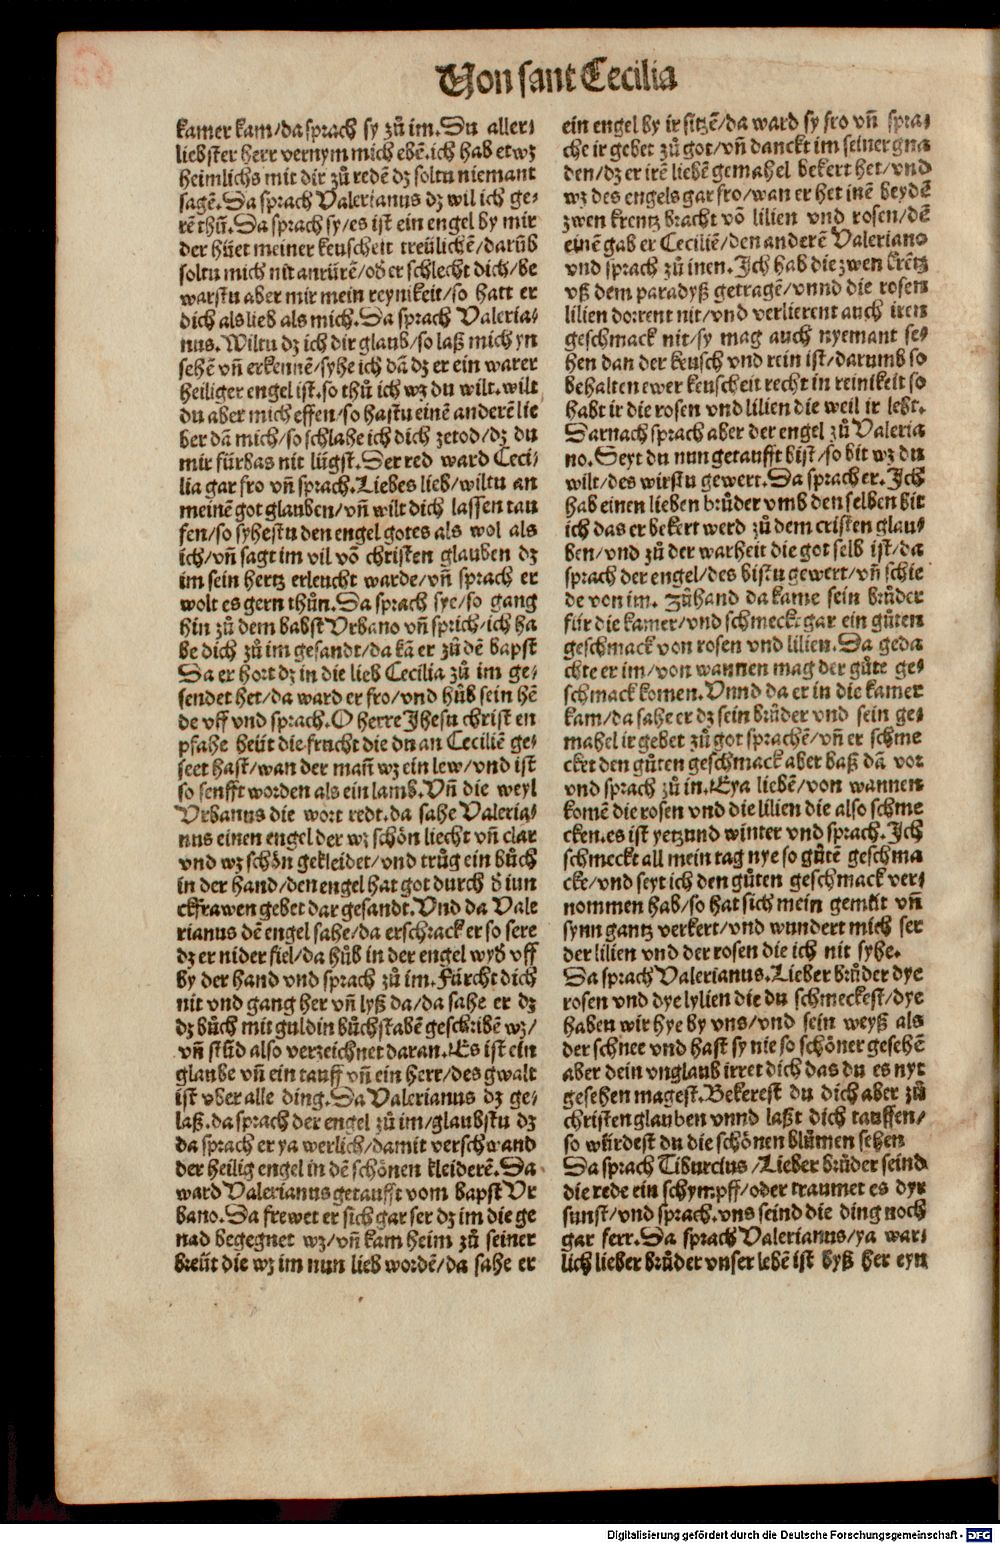 Von sant Cecilia
kamer kam/da sprach sy zů im. Du aller⸗
liebster herr vernym mich ebē. ich hab etwz
heimlichs mit dir zů redē dz soltu niemant
sagē. Da sprach Valerianus dz wil ich ge⸗
rē thů. Da sprach sy/es ist ein engel by mir
der hüet meiner keuscheit treülichē/darūb
soltu mich nit anrürē/ob er schlecht dich/be
warstu aber mir mein reynikeit/so hatt er
dich als lieb als mich. Da sprach Valeria⸗
nus. Wiltu dz ich dir glaub/so laß mich yn
sehē vñ erkennē/syhe ich dā dz er ein warer
heiliger engel ist. so thů ich wz du wilt. wilt
du aber mich effen/so hastu einē anderē lie
ber dā mich/so schlahe ich dich zetod/dz du
mir fürbas nit lügst. Der red ward Ceci⸗
lia gar fro vñ sprach. Liebes lieb/wiltu an
meinē got glauben/vñ wilt dich lassen tau
fen/so syhestu den engel gotes als wol als
ich/vñ sagt im vil vō christen glauben dz
im sein hertz erleucht warde/vñ sprach er
wolt es gern thůn. Da sprach sye/so gang
hin zů dem babst Vrbano vñ sprich/ich ha
be dich zů im gesandt/da kā er zů dē bapst
Da er hort dz in die lieb Cecilia zů im ge⸗
sendet het/da ward er fro/vnd hůb sein hē
de vff vnd sprach. O herre Jhesu christ en
pfahe heüt die frucht die du an Ceciliē ge⸗
seet hast/wan der mañ wz ein lew/vnd ist
so senfft worden als ein lamb. Vñ die weyl
Vrbanus die wort redt. da sahe Valeria⸗
nus einen engel der wz schön liecht vñ clar
vnd wz schön gekleidet/vnd trůg ein bůch
in der hand/den engel hat got durch d̕ iun
ckfrawen gebet dar gesandt. Vnd da Vale
rianus dē engel sahe/da erschrack er so sere
dz er nider fiel/da hůb in der engel wyd̕ vff
by der hand vnd sprach zů im. Fürcht dich
nit vnd gang her vñ lyß da/da sahe er dz
dz bůch mit guldin bůchstabē geschribē wz/
vñ stůd also verzeichnet daran. Es ist ein
glaube vñ ein tauff vñ ein herr/des gwalt
ist vber alle ding. Da Valerianus dz ge⸗
laß. da sprach der engel zů im/glaubstu dz
da sprach er ya werlich/damit verschwand
der heilig engel in dē schönen kleiderē. Da
ward Valerianus getaufft vom bapst Vr
bano. Da frewet er sich gar ser dz im die ge
nad begegnet wz/vñ kam heim zů seiner
breüt die wz im nun lieb wordē/da sahe er
ein engel by ir sitzē/da ward sy fro vñ spra⸗
che ir gebet zů got/vñ danckt im seiner gna
den/dz er irē liebē gemahel bekert het/vnd
wz des engels gar fro/wan er het inē beydē
zwen krentz bracht vō lilien vnd rosen/dē
einē gab er Ceciliē/den anderē Valeriano
vnd sprach zů inen. Ich hab die zwen krētz
vß dem paradyß getragē/vnnd die rosen
lilien dorrent nit/vnd verlierent auch iren
geschmack nit/sy mag auch nyemant se⸗
hen dan der keusch vnd rein ist/darumb so
behalten ewer keuscheit recht in reinikeit so
habt ir die rosen vnd lilien die weil ir lebt.
Darnach sprach aber der engel zů Valeria
no. Seyt du nun getaufft bist/so bit wz du
wilt/des wirstu gewert. Da sprach er. Ich
hab einen lieben brůder vmb den selben bit
ich das er bekert werd zů dem cristen glau⸗
ben/vnd zů der warheit die got selb ist/da
sprach der engel/des bistu gewert/vñ schie
de von im. Zůhand da kame sein brůder
für die kamer/vnd schmeckt gar ein gůten
geschmack von rosen vnd lilien. Da geda
chte er im/von wannen mag der gůte ge⸗
schmack komen. Vnnd da er in die kamer
kam/da sahe er dz sein brůder vnd sein ge⸗
mahel ir gebet zů got sprachē/vñ er schme
cket den gůten geschmack aber baß dā vor
vnd sprach zů in. Eya liebē/von wannen
komē die rosen vnd die lilien die also schme
cken. es ist yetzund winter vnd sprach. Ich
schmeckt all mein tag nye so gůtē geschma
cke/vnd seyt ich den gůten geschmack ver⸗
nommen hab/so hat sich mein gemüt vñ
synn gantz verkert/vnd wundert mich ser
der lilien vnd der rosen die ich nit syhe.
Da sprach Valerianus. Lieber brůder dye
rosen vnd dye lylien die du schmeckest/dye
haben wir hye by vns/vnd sein weyß als
der schnee vnd hast sy nie so schöner gesehē
aber dein vnglaub irret dich das du es nyt
gesehen magest. Bekerest du dich aber zů
christen glauben vnnd laßt dich tauffen/
so würdest du die schönen blůmen sehen
Da sprach Tiburcius/Lieber brůder seind
die rede ein schympff/oder traumet es dyr
sunst/vnd sprach. vns seind die ding noch
gar ferr. Da sprach Valerianus/ya war⸗
lich lieber brůder vnser lebē ist byß her eyn
Digitalisierung gefördert durch die Deutsche Forschungsgemeinschaft - DFG